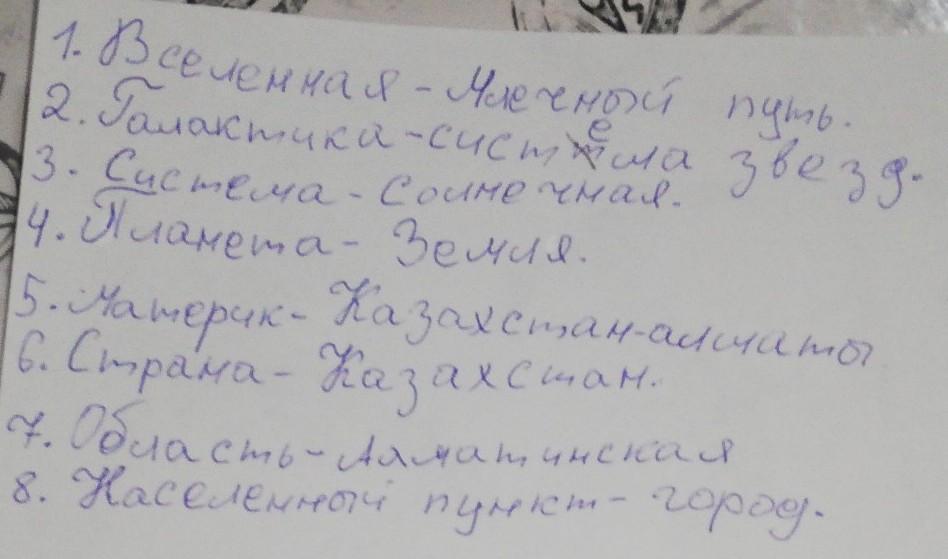 1. Вселенная - Млечный путь.
2. Галактика - система звезд.
3. Система - Солнечная.
4. Планета - Земля.
5. Материк - Казахстан-алматы
6. Страна - Казахстан.
7. Область - Алматинская
8. Населенный пункт - город.